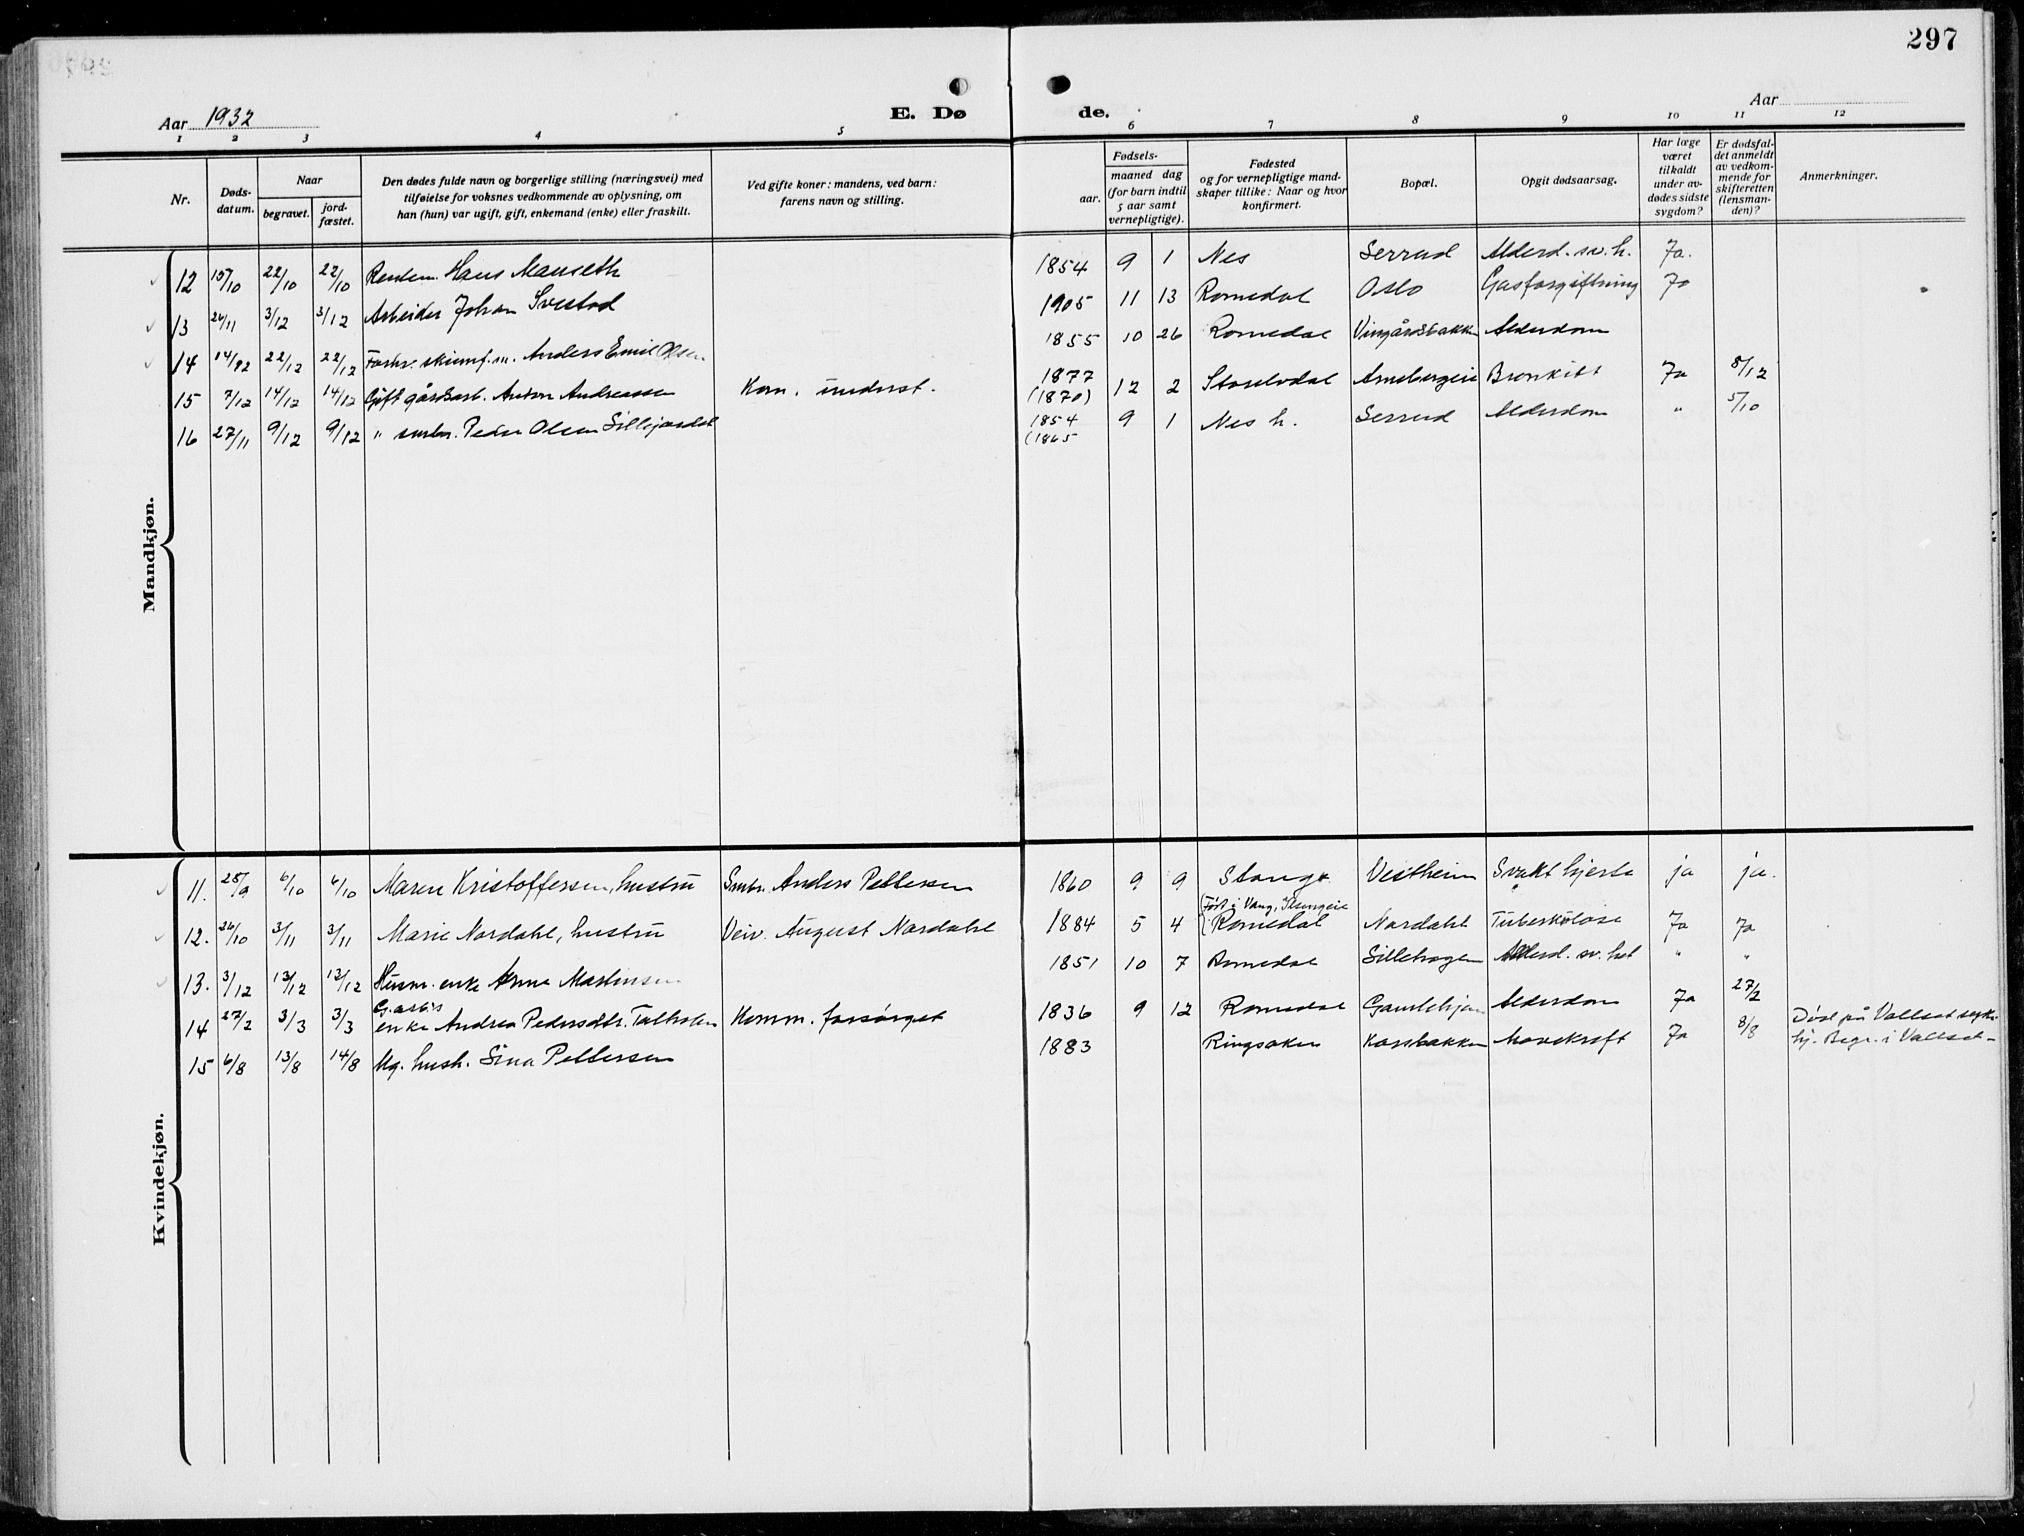 297
Aar 1932
E. Dø de.
Aar
1 2 3 4 5 6 7 8 9 10 11 12
Nr.
Døds-
datum.
Naar
begravet.
jord-
fæstet.
Den dødes fulde navn og borgerlige stilling (næringsvei) med
tilføielse for voksnes vedkommende av oplysning, om
han (hun) var ugift, gift, enkemand (enke) eller fraskilt.
Ved gifte koner: mandens, ved barn:
farens navn og stilling.
Fødsels-
aar.
maaned dag
(for barn indtil
5 aar samt
vernepligtige).
Fødested
og for vernepligtige mand-
skaper tillike: Naar og hvor
konfirmert.
Bopæl.
Opgit dødsaarsag.
Har læge
været
tilkaldt
under av-
dødes sidste
sygdom?
Er dødsfal-
det anmeldt
av vedkom-
mende for
skifteretten
(lensman-
den)?
Anmerkninger.
Mandkjøn.
12 15/10 22/10 22/10 Hans Mauseth 1854 9 1 Nes Serrud Alderd. sv. h. Ja.
13 26/11 3/12 3/12 Arbeider Johan Svestad 1905 11 13 Romedal Oslo Gasforgiftning Ja
14 14/12 22/12 22/12 Anders Emil Olsen 1855 10 26 Romedal Vingårdsbakken Alderdom
15 7/12 14/12 14/12 Gift gårdsarb. Anton Andreassen Kom. underst. 1877 (1870) 12 2 Storelvdal Arnebergeie Bronkitt Ja 8/12
16 27/11 9/12 9/12 " smbr. Peder Olsen Sillijordet 1854 (1865 9 1 Nes h. Serrud Alderdom " 5/10
Kvindekjøn.
11. 28/9 6/10 6/10 Maren Kristoffersen, hustru Smbr. Anders Pettersen 1860 9 9 Stange Vestheim Svakt hjerte ja ja.
12. 26/10 3/11 3/11 Marie Nordahl, hustru Veiv. August Nordahl 1884 5 4 (Født i Vang, Romedal Nordahl Tuberkulose Ja Ja
13. 3/12 13/12 13/12 Husm. enke Anna Martinsen 1851 10 7 Romedal Sillehagen Alderd. sv. het " "
14 27/2 3/3 3/3 G.arb's enke Andrea Pedersdtr. Komm. forsørget 1836 9 12 Romedal Alderdom Ja 27/2
15 6/8 13/8 14/8 Ug. hush. Sina Pettersen 1883 Ringsaker Korsbakken Mavekreft Ja 8/8 Død på Vallset syke-
hj. Begr. i Vallset-